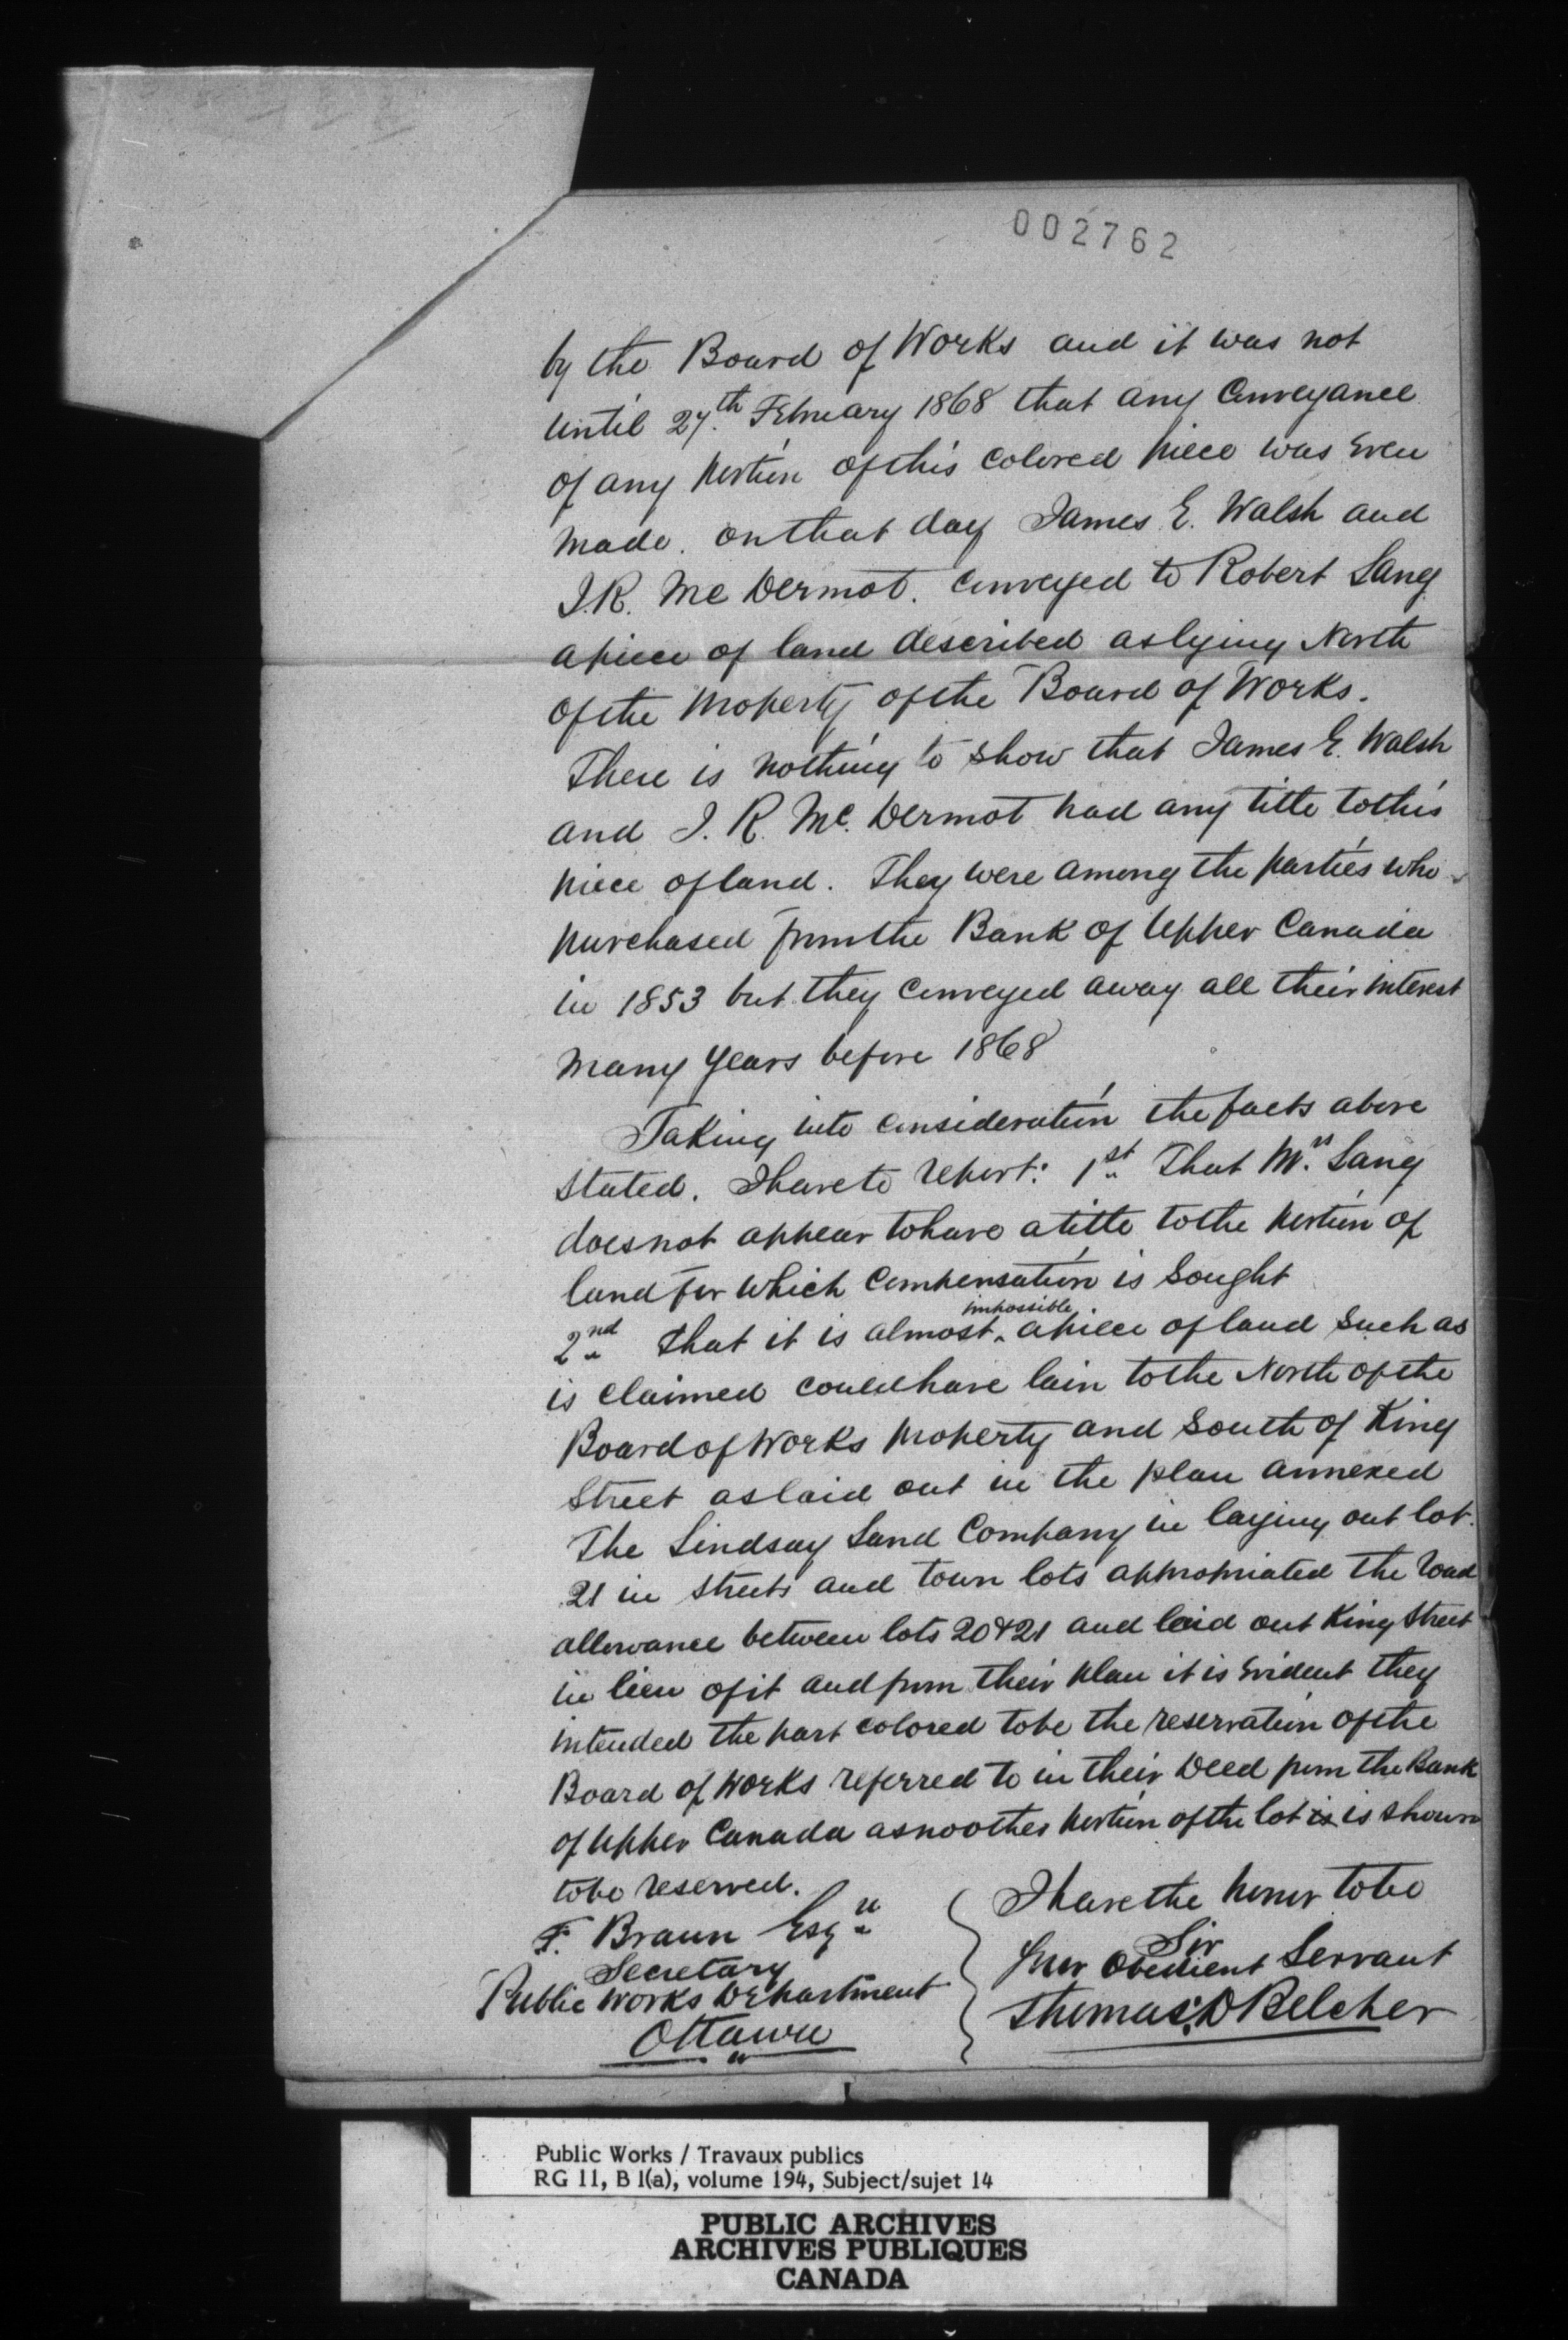 002762
by the Board of Works and it was not
until 27th February 1868 that any Conveyance
of any portion of this colored piece was Even
made. on that day James E. Walsh and
J.R. McDermot. Conveyed to Robert Lang
a piece of land described as lying North
of the property of the Board of Works.
There is nothing to show that James E. Walsh
and J. R. Mc. Dermot had any title to this
piece of land. They were among the parties who
purchased from the Bank of Upper Canada
in 1853 but they Conveyed away all their interest
many years before 1868
Taking into Consideration the facts above
stated. I have to report: 1st That Mrs Lang
does not appear to have a title to the portion of
land for which Compensation is Sought
impossible
2nd That it is almost ‸ a piece of land such as
is claimed could have lain to the North of the
Board of Works property and South of King
Street as laid out in the plan annexed
The Lindsay Land Company in laying out lot
21 in streets and town lots appropriated the road
allowance between lots 20 & 21 and laid out King Street
in lieu of it and from their plan it is Evident they
intended the part colored to be the reservation of the
Board of Works referred to in their Deed from the Bank
of Upper Canada as no other portion of the lot is is shown
to be reserved.
I have the honor to be
Sir
Your Obedient Servant
Thomas D Belcher
F. Braun Esqre
Secretary
Public Works Department
Ottawa
Public Works / Travaux publics
RG 11, B 1(a), volume 194, Subject/sujet 14
PUBLIC ARCHIVES
ARCHIVES PUBLIQUES
CANADA